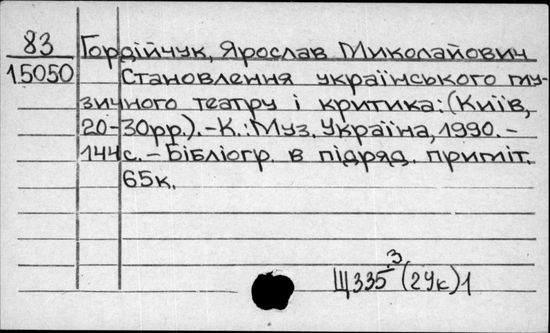 83 Гордійчук, Ярослав Миколайович
15050 Становлення українського му-
зичного театру і критика: (Київ,
20-30рр.). – К.: Муз. Україна, 1990. –
144 с. – Бібліогр. в підряд. приміт.
65к.
Щ335.3(2Ук)1